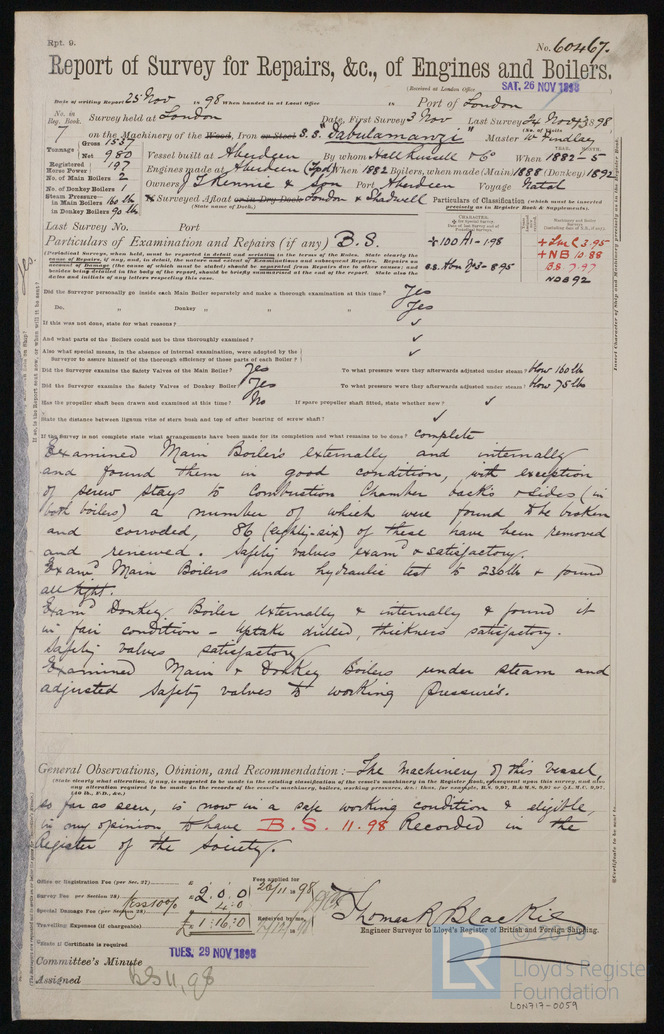 Rpt. 9.
No. 60467.
Report of Survey for Repairs, &c., of Engines and Boilers.
(Received at London Office SAT. 26 NOV 1898
Date of writing Report 25 Nov 1898 When handed in at Local Office 18 Port of London
No. in Reg. Book. 7 Survey held at London Date, First Survey 3 Nov Last Survey 24 Nov 1898
(No. of Visits
on the Machinery of the Wood, Iron or Steel S.S. "Dabulamanzi" Master W. Findlay
Tonnage Gross 1537
Net 980
Vessel built at Aberdeen By whom Hall Russell & Co When 1882-5
Registered Horse Power 197
Engines made at Aberdeen When 1882 Boilers, when made (Main) 1888 (Donkey) 1892
No. of Main Boilers 2
No. of Donkey Boilers 1
Owners J T Rennie & Son Port Aberdeen Voyage Natal
Steam Pressure in Main Boilers 160 lb
in Donkey Boilers 90 lb
Surveyed Afloat or in Dry Dock London & Shadwell
(State name of Dock.)
Particulars of Classification (which must be inserted precisely as in Register Book & Supplements).
Last Survey No. Port
Particulars of Examination and Repairs (if any) B.S.
+100A1-1-98
+LMC 3.95
+NB 10.88
B.S. 7.97
NDB 92
Did the Surveyor personally go inside each Main Boiler separately and make a thorough examination at this time? Yes
Do. " Donkey " " " " Yes
If this was not done, state for what reasons? ✓
And what parts of the Boilers could not be thus thoroughly examined? ✓
Also what special means, in the absence of internal examination, were adopted by the Surveyor to assure himself of the thorough efficiency of those parts of each Boiler? ✓
Did the Surveyor examine the Safety Valves of the Main Boiler? Yes To what pressure were they afterwards adjusted under steam? Now 160 lb
Did the Surveyor examine the Safety Valves of Donkey Boiler? Yes To what pressure were they afterwards adjusted under steam? Now 75 lb
Has the propeller shaft been drawn and examined at this time? No If spare propeller shaft fitted, state whether new? ✓
State the distance between lignum vitæ of stern bush and top of after bearing of screw shaft? ✓
If the Survey is not complete state what arrangements have been made for its completion and what remains to be done? complete
Examined Main Boilers externally and internally
and found them in good condition, with exception
of screw stays to Combustion Chamber backs & sides (in
both boilers) a number of which were found to be broken
and corroded, 86 (eighty-six) of these have been removed
and renewed. Safety valves examd & satisfactory.
Examd Main Boilers under hydraulic test to 236 lb & found
all tight.
Examd Donkey Boiler externally & internally & found it
in fair condition – uptake drilled, thickness satisfactory.
Safety valves satisfactory
Examined Main & Donkey Boilers under steam and
adjusted safety valves to working pressures.
General Observations, Opinion, and Recommendation:— The machinery of this vessel,
so far as seen, is now in a safe working condition & eligible,
in my opinion to have B.S. 11.98 Recorded in the
Register of the Society.
Office or Registration Fee (per Sec. 27) £
Survey Fee (per Section 28) £ 2.0.0
less 10% 4.0
Special Damage Fee (per Section 28)
Travelling Expenses (if chargeable) £ 1.16.0
Fees applied for 26/11 1898
Received by me,
Thomas R Blackie
Engineer Surveyor to Lloyd's Register of British and Foreign Shipping.
State if Certificate is required
Committee's Minute TUES. 29 NOV 1898
Assigned BS 11,98
© 2019
LR
Lloyd's Register
Foundation
LON717-0059